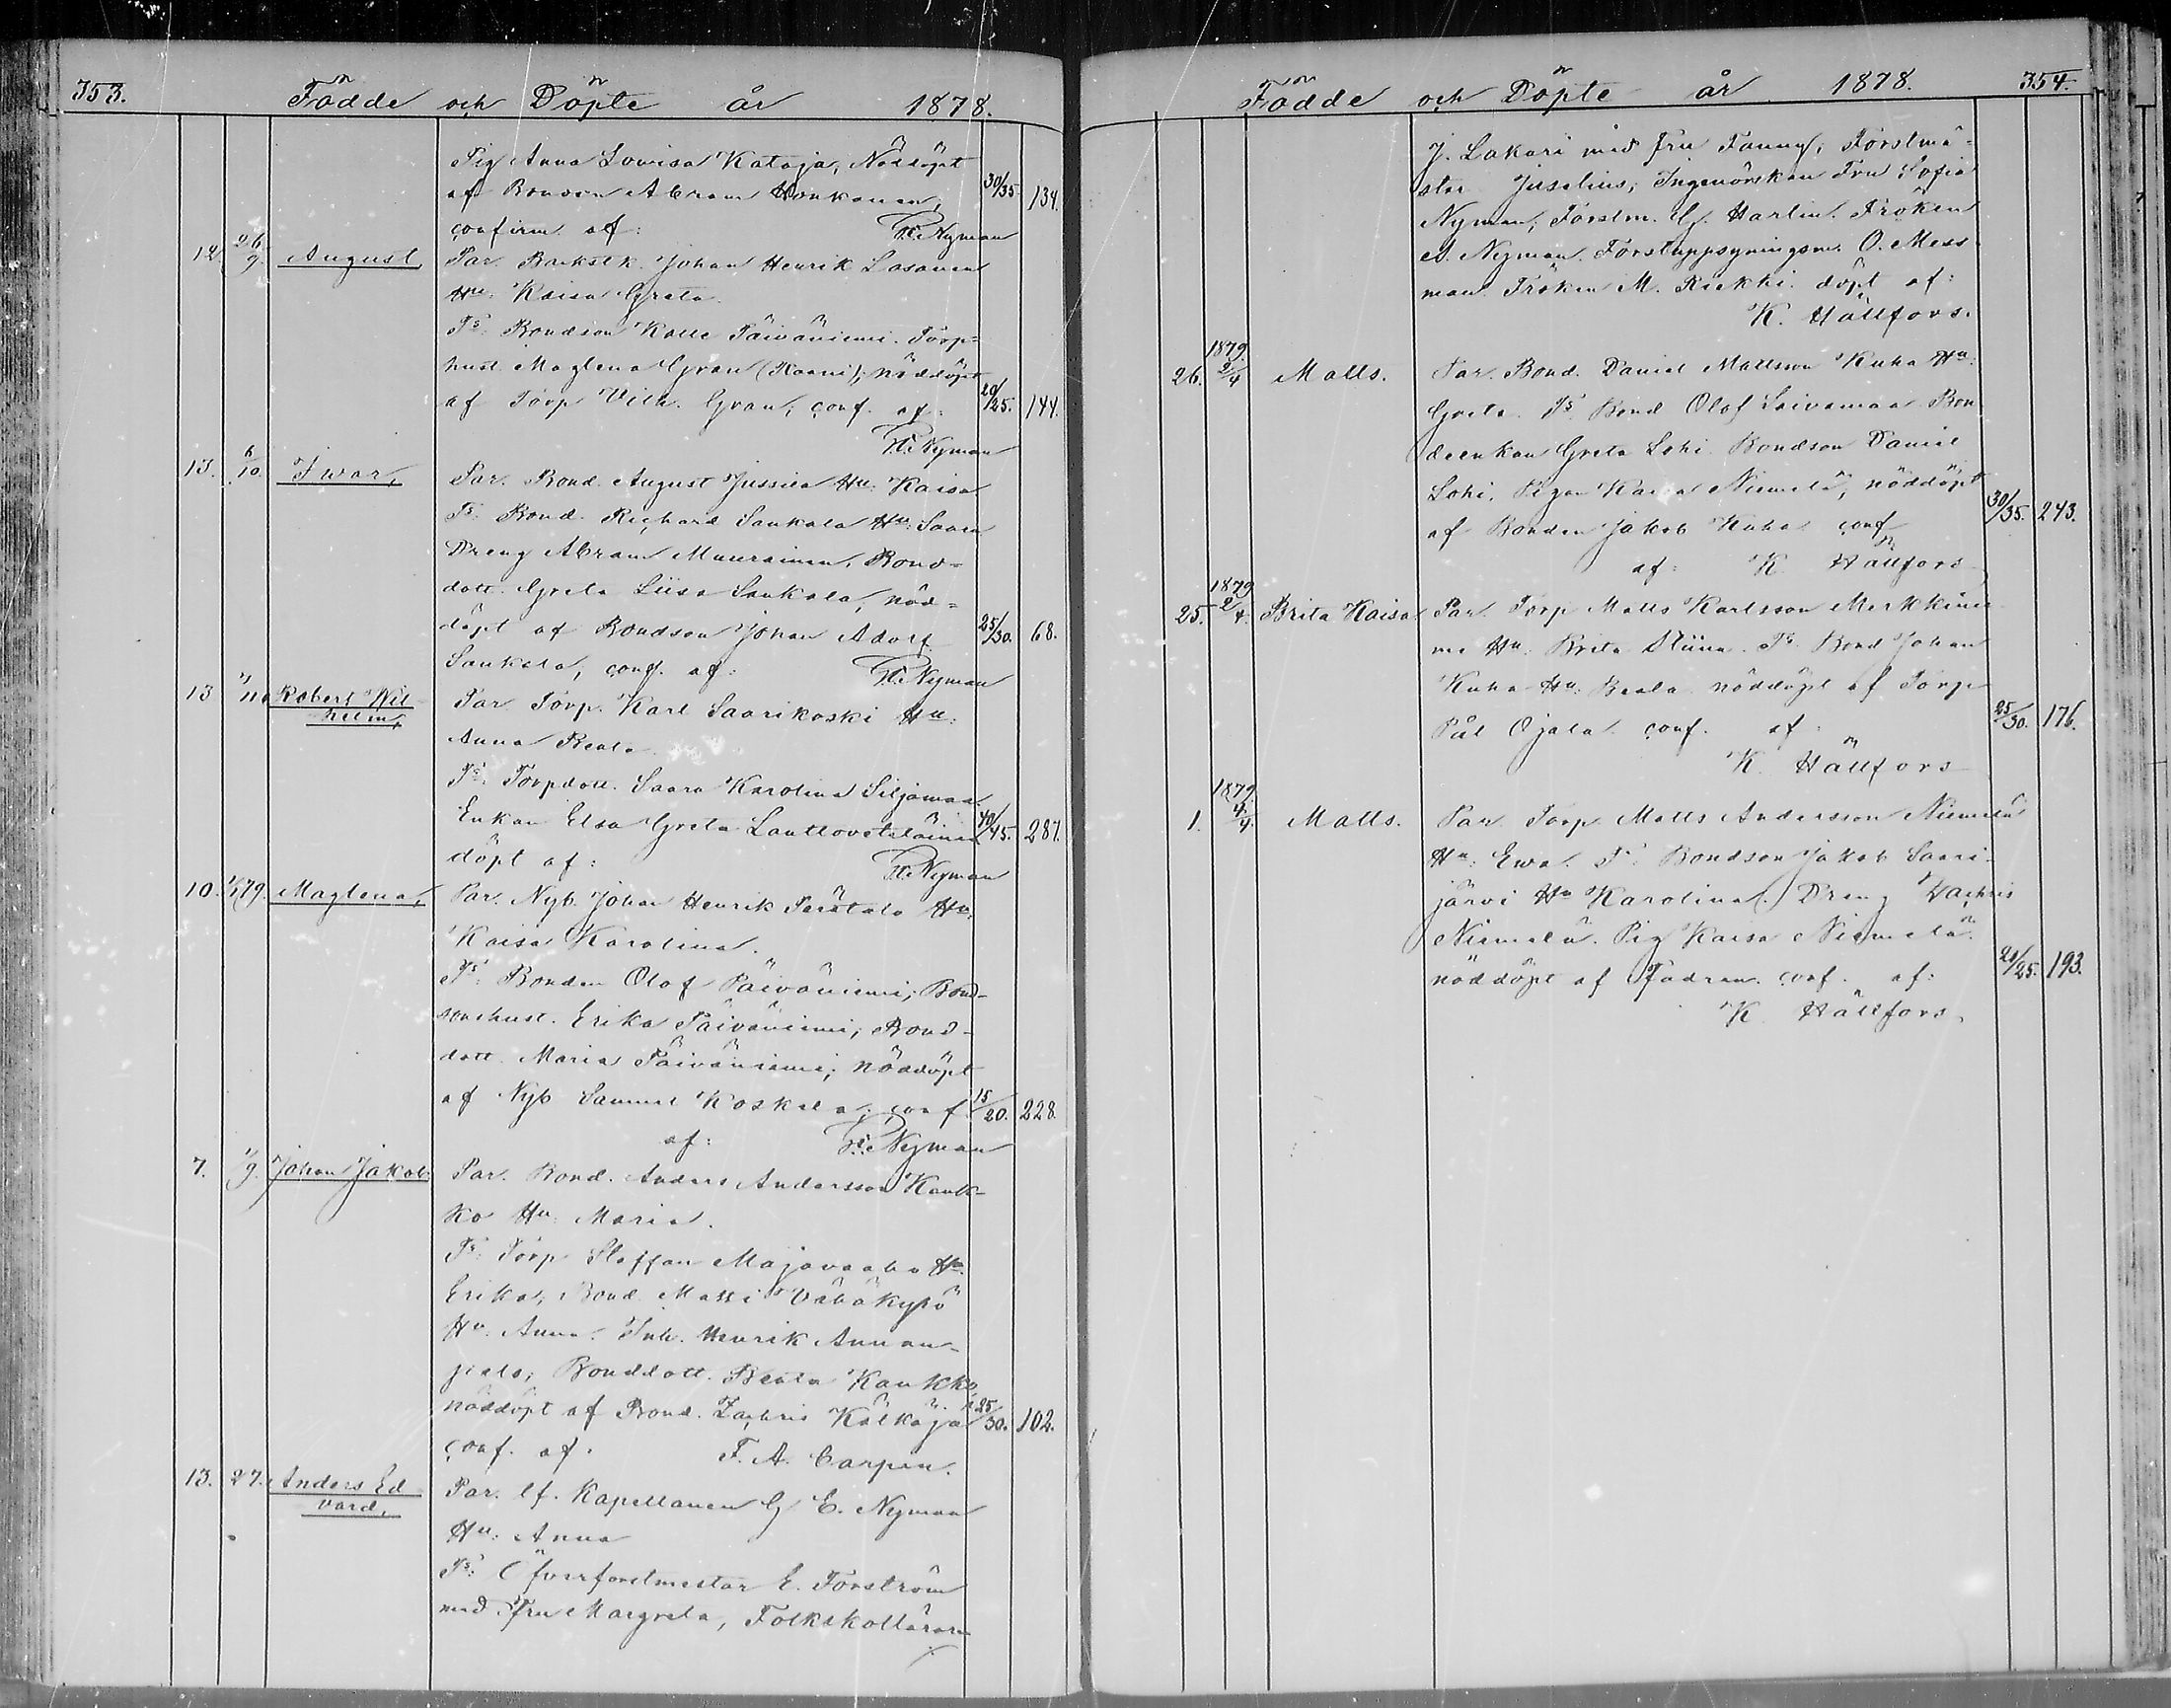 353. Födde och Döpte år 1878.
Pig Anna Lovisa Kataja, Nöddöpt
af Bonden Abram Honkanen, 30/35 134.
confirm. af: Nyman
12 26/9. August, Par. Backstk. Johan Henrik Lasanen
Hu: Kaisa Greta.
Ts. Bondson Kalle Päiväniemi. Torp-
hust. Maglena Gran (Kaani), nöddöpt
af Torp Vilh. Gran, conf. af: 20/25. 144.
Nyman
13. 6/10. Iwar, Par. Bond. August Jussila Hu: Kaisa
Ts. Bond. Richard Sankala Hu: Saara
Dreng Abram Muurainen, Bond-
dott. Greta Liisa Sankala, nöd-
döpt af Bondson Johan Adorf 25/30. 68.
Sankala, conf. af: Nyman
13 1/11 Robert Wil-
helm, Par. Torp. Karl Saarikoski Hu:
Anna Beata
Ts. Torpdott. Saara Karolina Siljamaa
Enkan Elsa Greta Lauttovsteläinen 40/45. 287.
döpt af: Nyman
10. 1/1 79. Maglena, Par. Nyb. Johan Henrik Perätalo Hu:
Kaisa Karolina.
Ts. Bonden Olof Päiväniemi, Bond-
sonshust. Erika Päiväniemi, Bond-
dott. Maria Päiväniemi, nöddöpt
af Nyb Samuel Koskela, conf 15/20. 228.
af: Nyman
7. 1/9. Johan Jakob. Par. Bond. Anders Andersson Kauk-
ko Hu: Maria.
Ts. Torp Staffan Majavaaho Hu:
Erika, Bond. Matti Vähäkyrö
Hu. Anna. Inh. Henrik Annan-
piete, Bonddott. Beata Kaukko,
nöddöpt af Bond. Zachris Kälkäjä 25/30. 102.
conf. af. F. A. Carpen.
13. 27. Anders Ed-
vard, Par. tf. Kapellanen G E. Nyman
Hu: Anna
Ts: Öfverforstmestar E. Forström
med fru Margreta, Folkskolläraren
Födde och Döpte år 1878. 354.
J. Lakari med fru Fanny, Forstmä-
star Juselius, Ingenörskan Fru Sofia
Nyman, Forstm. G. Harlin. Fröken
A. Nyman. Forstuppsyningsm. O. Mess-
man. Fröken M. Riekki. döpt af:
K. Hällfors.
1879.
26. 2/4 Matts. Par. Bond. Daniel Mattsson Kuha Hu:
Greta. Ts. Bond Olof Saivamaa Bon
deenkan Greta Lohi. Bondson Daniel
Lohi. Pigan Kaisa Niemelä, nöddöpt
af Bonden Jakob Kuha conf 30/35. 243.
af: K. Hällfors
1879
25. 2/4. Brita Kaisa. Par. Torp Matts Karlsson Merkkinie
mi Hu. Brita Stiina. Ts. Bond Johan
Kuha Hu: Beata nöddöpt af Torp
Pål Ojala. conf. af 25/30. 176.
K. Hällfors
1879.
1. 4/4. Matts. Par. Torp Matts Andersson Niemelä
Hu: Ewa. Ts. Bondson Jakob Saari-
järvi Hu Karolina. Dreng Zachris
Niemelä. Pig Kaisa Niemelä.
nöddöpt af Fadren. conf. af: 20/25. 193.
K. Hällfors.